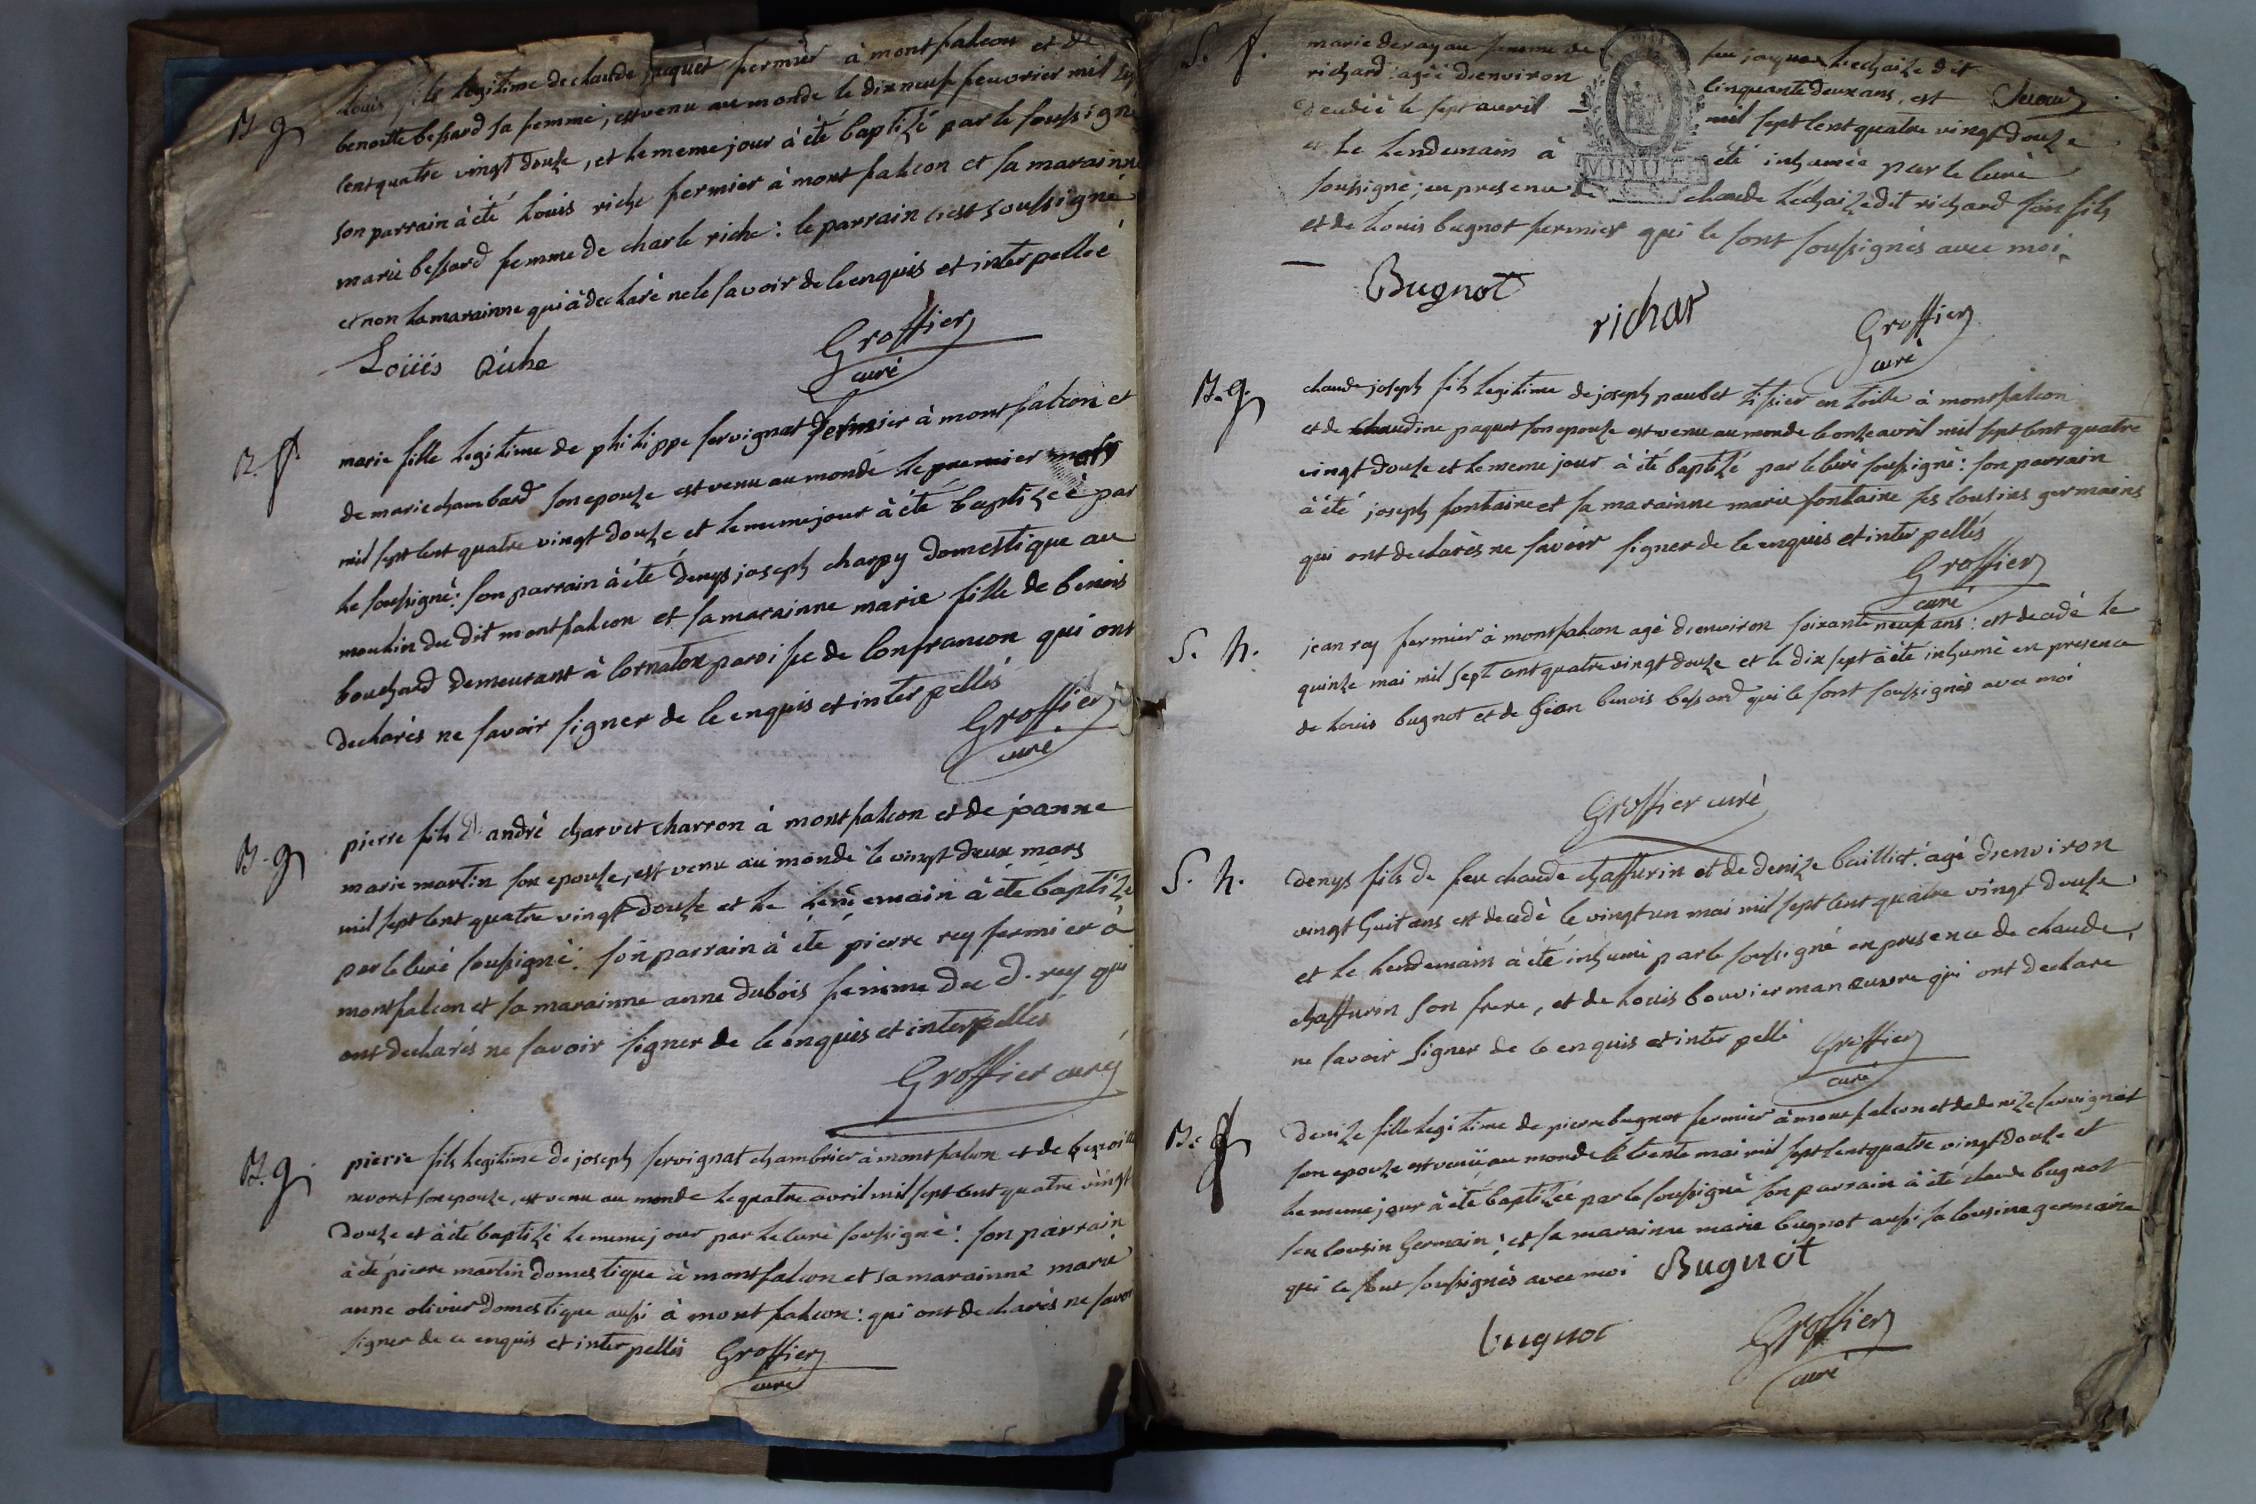 B. g.
Louis fils legitime de claude paquet fermier à montfalcon et de
benoitte bessard sa femme, est venu au monde le dix neuf feuvrier mil sept
cent quatre vingt douze, et le meme jour à été baptizé par le soussigné
son parrain à été Louis riche fermier à montfalcon et sa marainne
marie bessard femme de charle riche : le parrain c'est soussigné
et non la marainne qui à declaré ne le savoir de ce enquis et interpellée
Loüis Riche
Groffier
curé
B. f.
marie fille legitime de philippe servignat fermier à montfalcon et
de marie chambard son epouze est venu au monde le premier mars
mil sept cent quatre vingt douze et le meme jour à été baptizée par
le soussigné : son parrain à été denys joseph charpy domestique au
moulin du dit montfalcon et sa marainne marie fille de benois
bouchard demeurant à cornaton paroisse de confrancon qui ont
declarés ne savoir signer de ce enquis et interpellés
Groffier
curé
B. g.
pierre fils d'andré charvet charron à montfalcon et de janne
marie martin son epouze, est venu au monde le vingt deux mars
mil sept cent quatre vingt douze et le lendemain à été baptizé
par le curé soussigné : son parrain à été pierre rey fermier à
montfalcon et sa marainne anne dubois femme du d. rey qui
ont declarés ne savoir signer de ce enquis et interpellés
Groffier curé
B. g.
pierre fils legitime de joseph servignat chambrier à montfalcon et de benoitte
son epouze, est venu au monde le quatre avril mil sept cent quatre vingt
douze et à été baptizé le meme jour par le curé soussigné : son parrain
à été pierre martin domestique à montfalcon et sa marainne marie
anne olivier domestique aussi à montfalcon : qui ont declarés ne savoir
signer de ce enquis et interpellés
Groffier
curé
S. f.
marie deray au femme de feu jaques lechaize dit
richard agée d'environ cinquante deux ans, est
decedée le sept avril mil sept cent quatre vingt douze
et le lendemain à été inhumée par le curé
MINUTE
soussigné ; en presence de claude lechaize dit richard son fils
et de Louis bugnot fermier qui le sont soussignés avec moi.
Bugnot
richar
Groffier
curé
B. g.
claude joseph fils legitime de joseph paubet tissier en toille à montfalcon
et de claudine paquet son epouze est venu au monde le onze avril mil sept cent quatre
vingt douze et le meme jour à été baptizé par le curé soussigné : son parrain
à été joseph fontaine et sa marainne marie fontaine ses cousins germains
qui ont declarés ne savoir signer de ce enquis et interpellés
Groffier
curé
S. h.
jean ray fermier à montfalcon agé d'environ soixante neuf ans : est decedé le
quinze mai mil sept cent quatre vingt douze et le dix sept à été inhumé en presence
de Louis bugnot et de jean benois bessard qui le sont soussignés avec moi
Groffier curé
S. h.
denys fils de feu claude chaffurin et de denize bailliet : agé d'environ
vingt huit ans est decedé le vingt un mai mil sept cent quatre vingt douze
et le lendemain à été inhumé par le soussigné en presence de claude
chaffurin son frere, et de Louis bouvier manœuvre qui ont declare
ne savoir signer de ce enquis et interpellé
Groffier
curé
B. f.
denize fille legitime de pierre bugnot fermier à montfalcon et de denize servignat
son epouze est venüe au monde le trente mai mil sept cent quatre vingt douze et
le meme jour à été baptizée par le soussigné son parrain à été claude bugnot
son cousin germain ; et sa marainne marie bugnot aussi sa cousine germaine
qui ce sont soussignés avec moi
Bugnot
bugnot
Groffier
curé